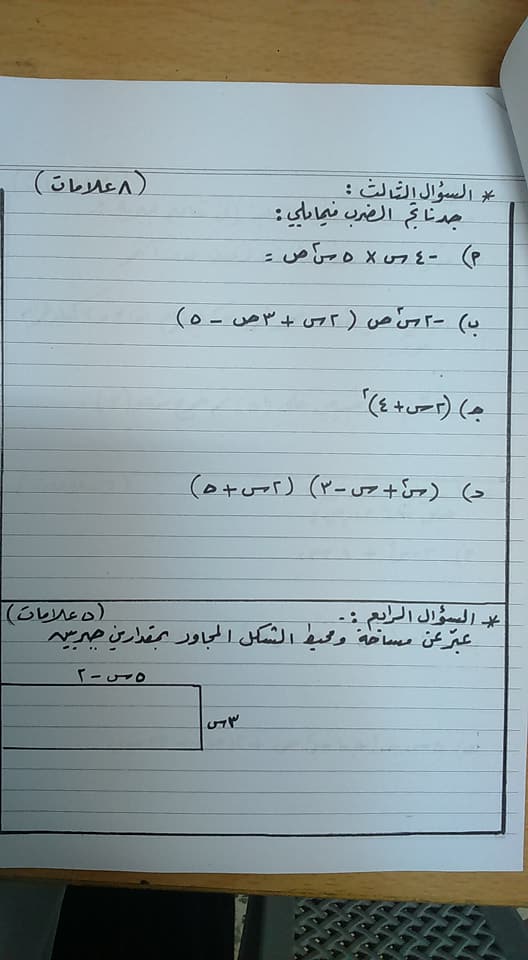 * السؤال الثالث : (٨ علامات)
جد ناتج الضرب فيما يلي :
أ) -٤س × ٥س٢ص =
ب) -٢س٢ص (٢س + ٣ص - ٥)
جـ) (٢س + ٤)٢
د) (س٢ + س - ٣) (٢س + ٥)
* السؤال الرابع :- (٥ علامات)
عبّر عن مساحة ومحيط الشكل المجاور بمقدارين جبريين
٥س - ٢
٣س